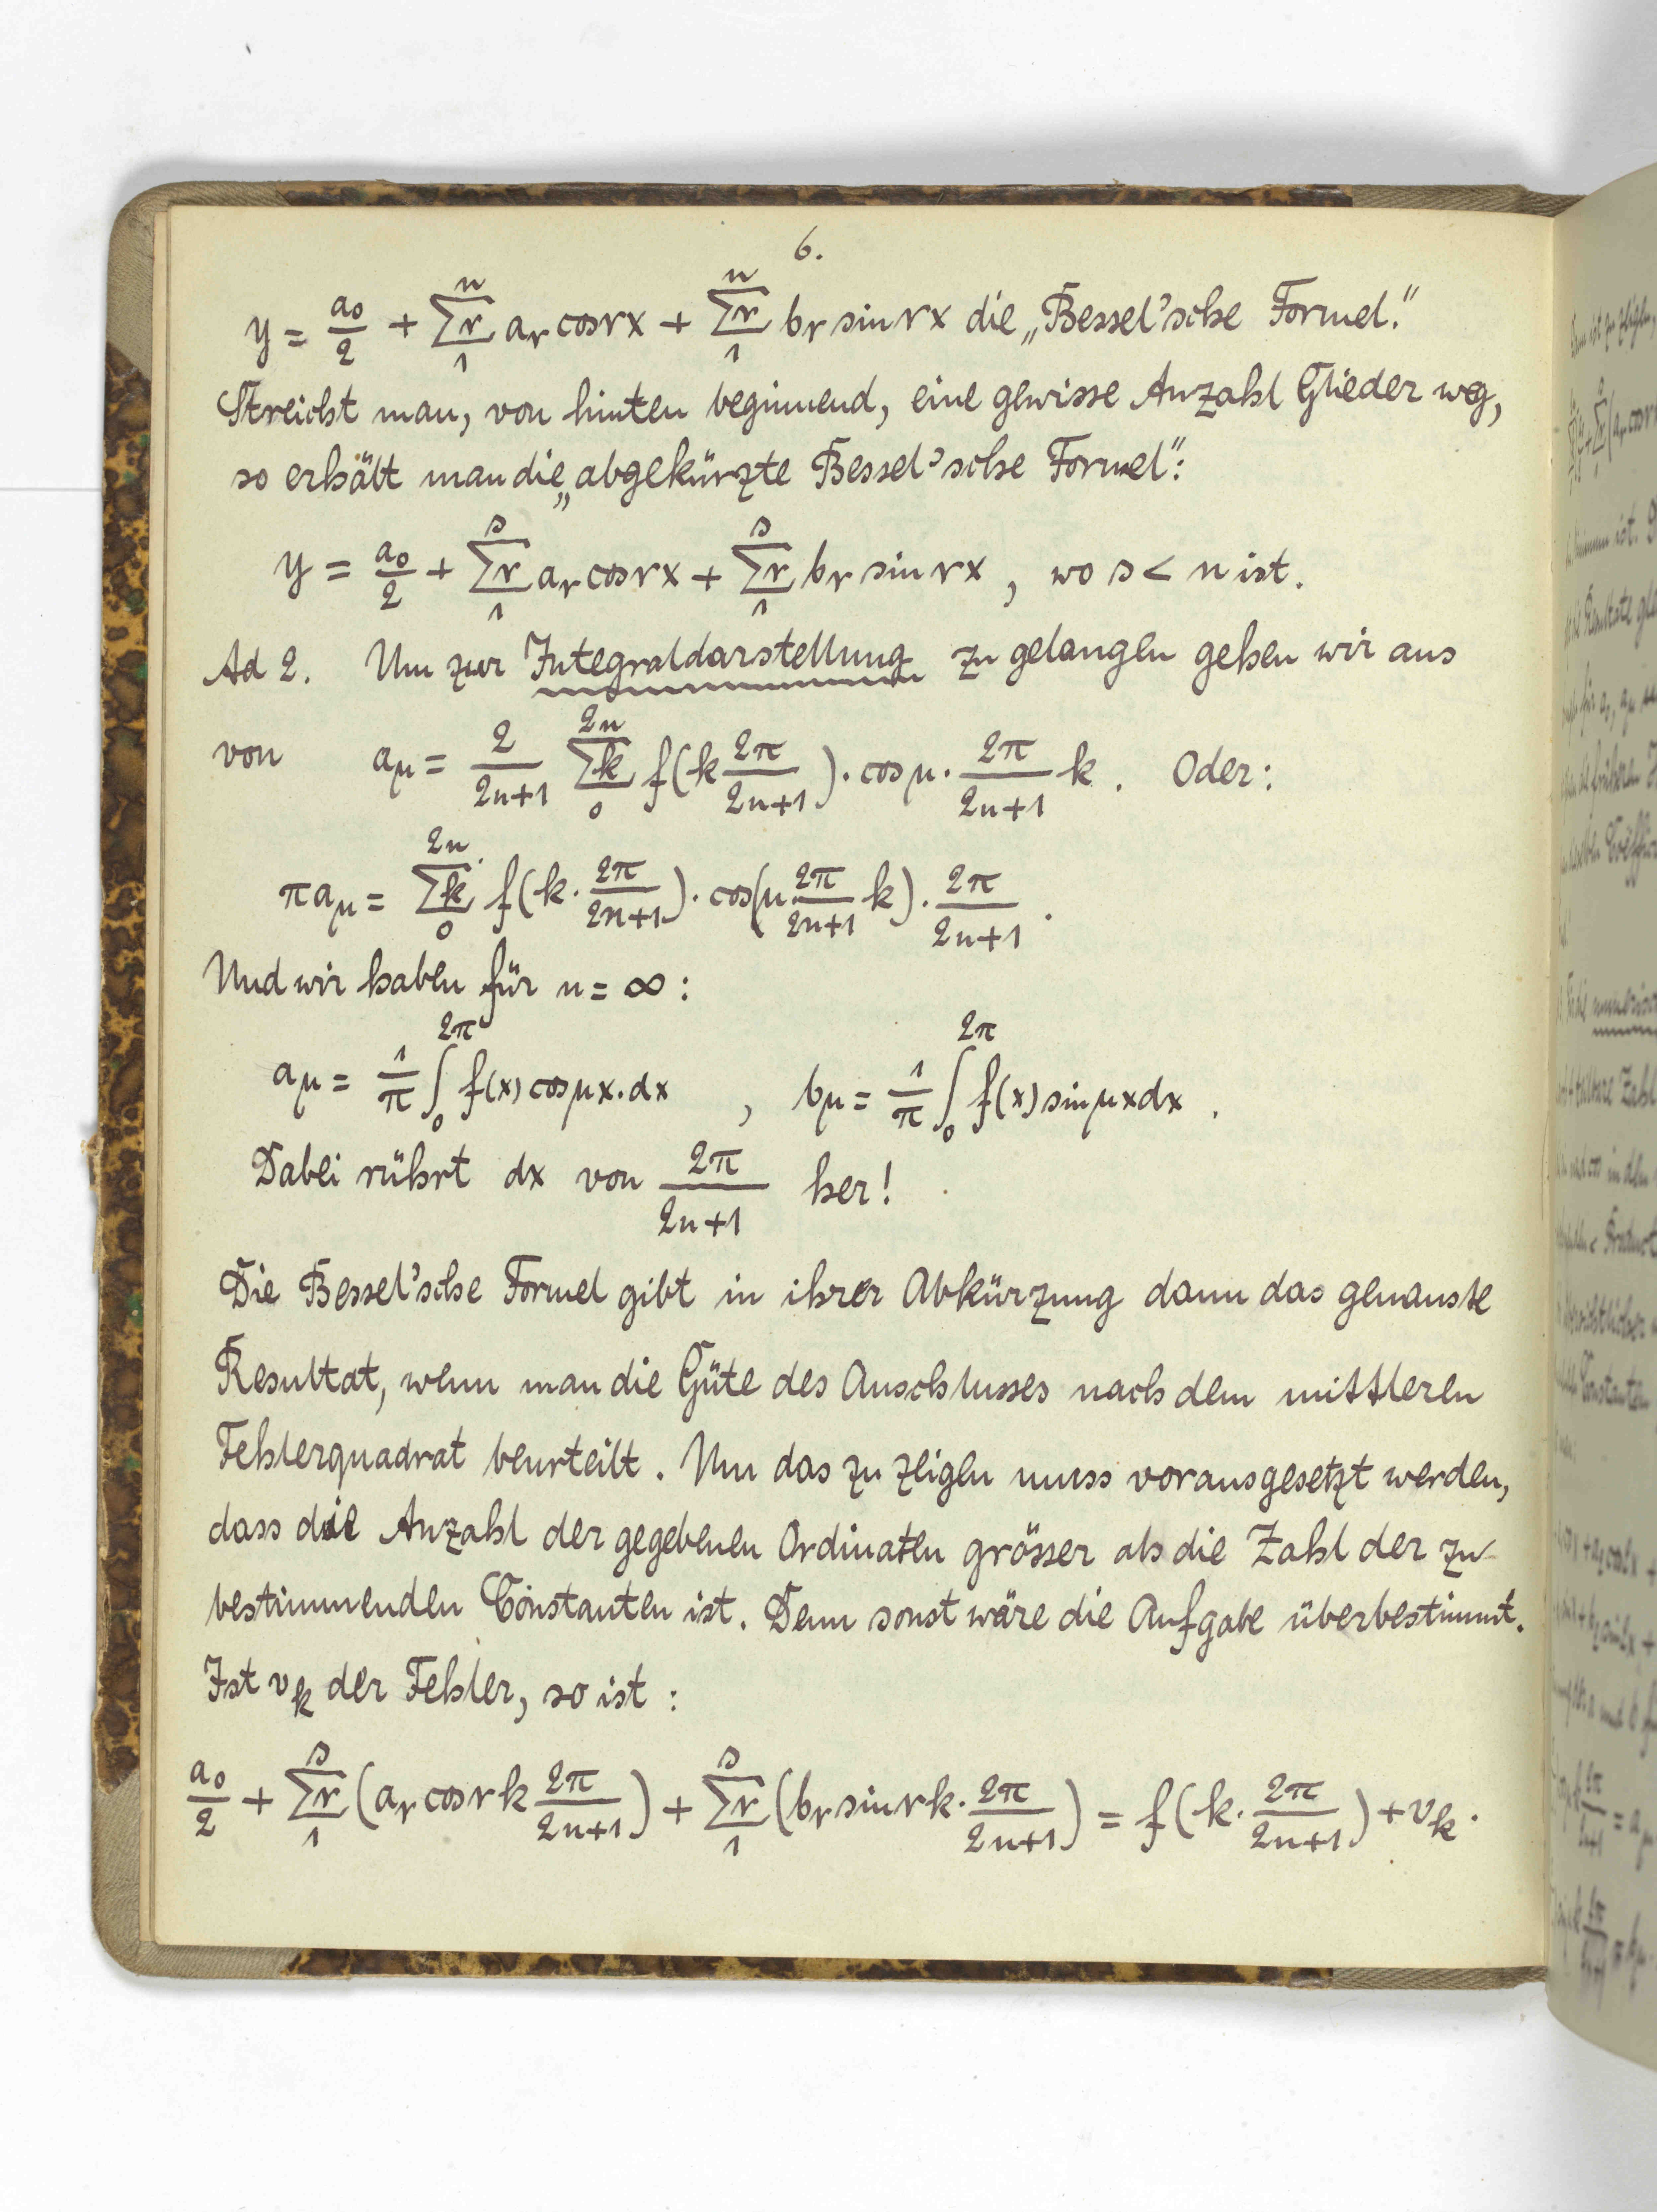 6.
y = a₀/2 + Σr₁ⁿ aᵣ cos rx + Σr₁ⁿ bᵣ sin rx die „Bessel'sche Formel."
Streicht man, von hinten beginnend, eine gewisse Anzahl Glieder weg,
so erhält man die „abgekürzte Bessel'sche Formel":
y = a₀/2 + Σr₁ˢ aᵣ cos rx + Σr₁ˢ bᵣ sin rx , wo s < n ist.
Ad 2. Um zur Integraldarstellung zu gelangen gehen wir aus
von a_μ = 2/(2n+1) Σk₀²ⁿ f(k 2π/(2n+1)) · cos μ · 2π/(2n+1) k . Oder:
π a_μ = Σk₀²ⁿ f(k · 2π/(2n+1)) · cos(μ · 2π/(2n+1) k) · 2π/(2n+1) .
Und wir haben für n = ∞ :
a_μ = 1/π ∫₀^2π f(x) cos μx · dx , b_μ = 1/π ∫₀^2π f(x) sin μx dx .
Dabei rührt dx von 2π/(2n+1) her!
Die Bessel'sche Formel gibt in ihrer Abkürzung dann das genauste
Resultat, wenn man die Güte des Anschlusses nach dem mittleren
Fehlerquadrat beurteilt. Um das zu zeigen muss vorausgesetzt werden,
dass die Anzahl der gegebenen Ordinaten grösser als die Zahl der zu
bestimmenden Constanten ist. Denn sonst wäre die Aufgabe überbestimmt.
Ist v_k der Fehler, so ist :
a₀/2 + Σr₁ˢ (aᵣ cos rk 2π/(2n+1)) + Σr₁ˢ (bᵣ sin rk · 2π/(2n+1)) = f(k · 2π/(2n+1)) + v_k .